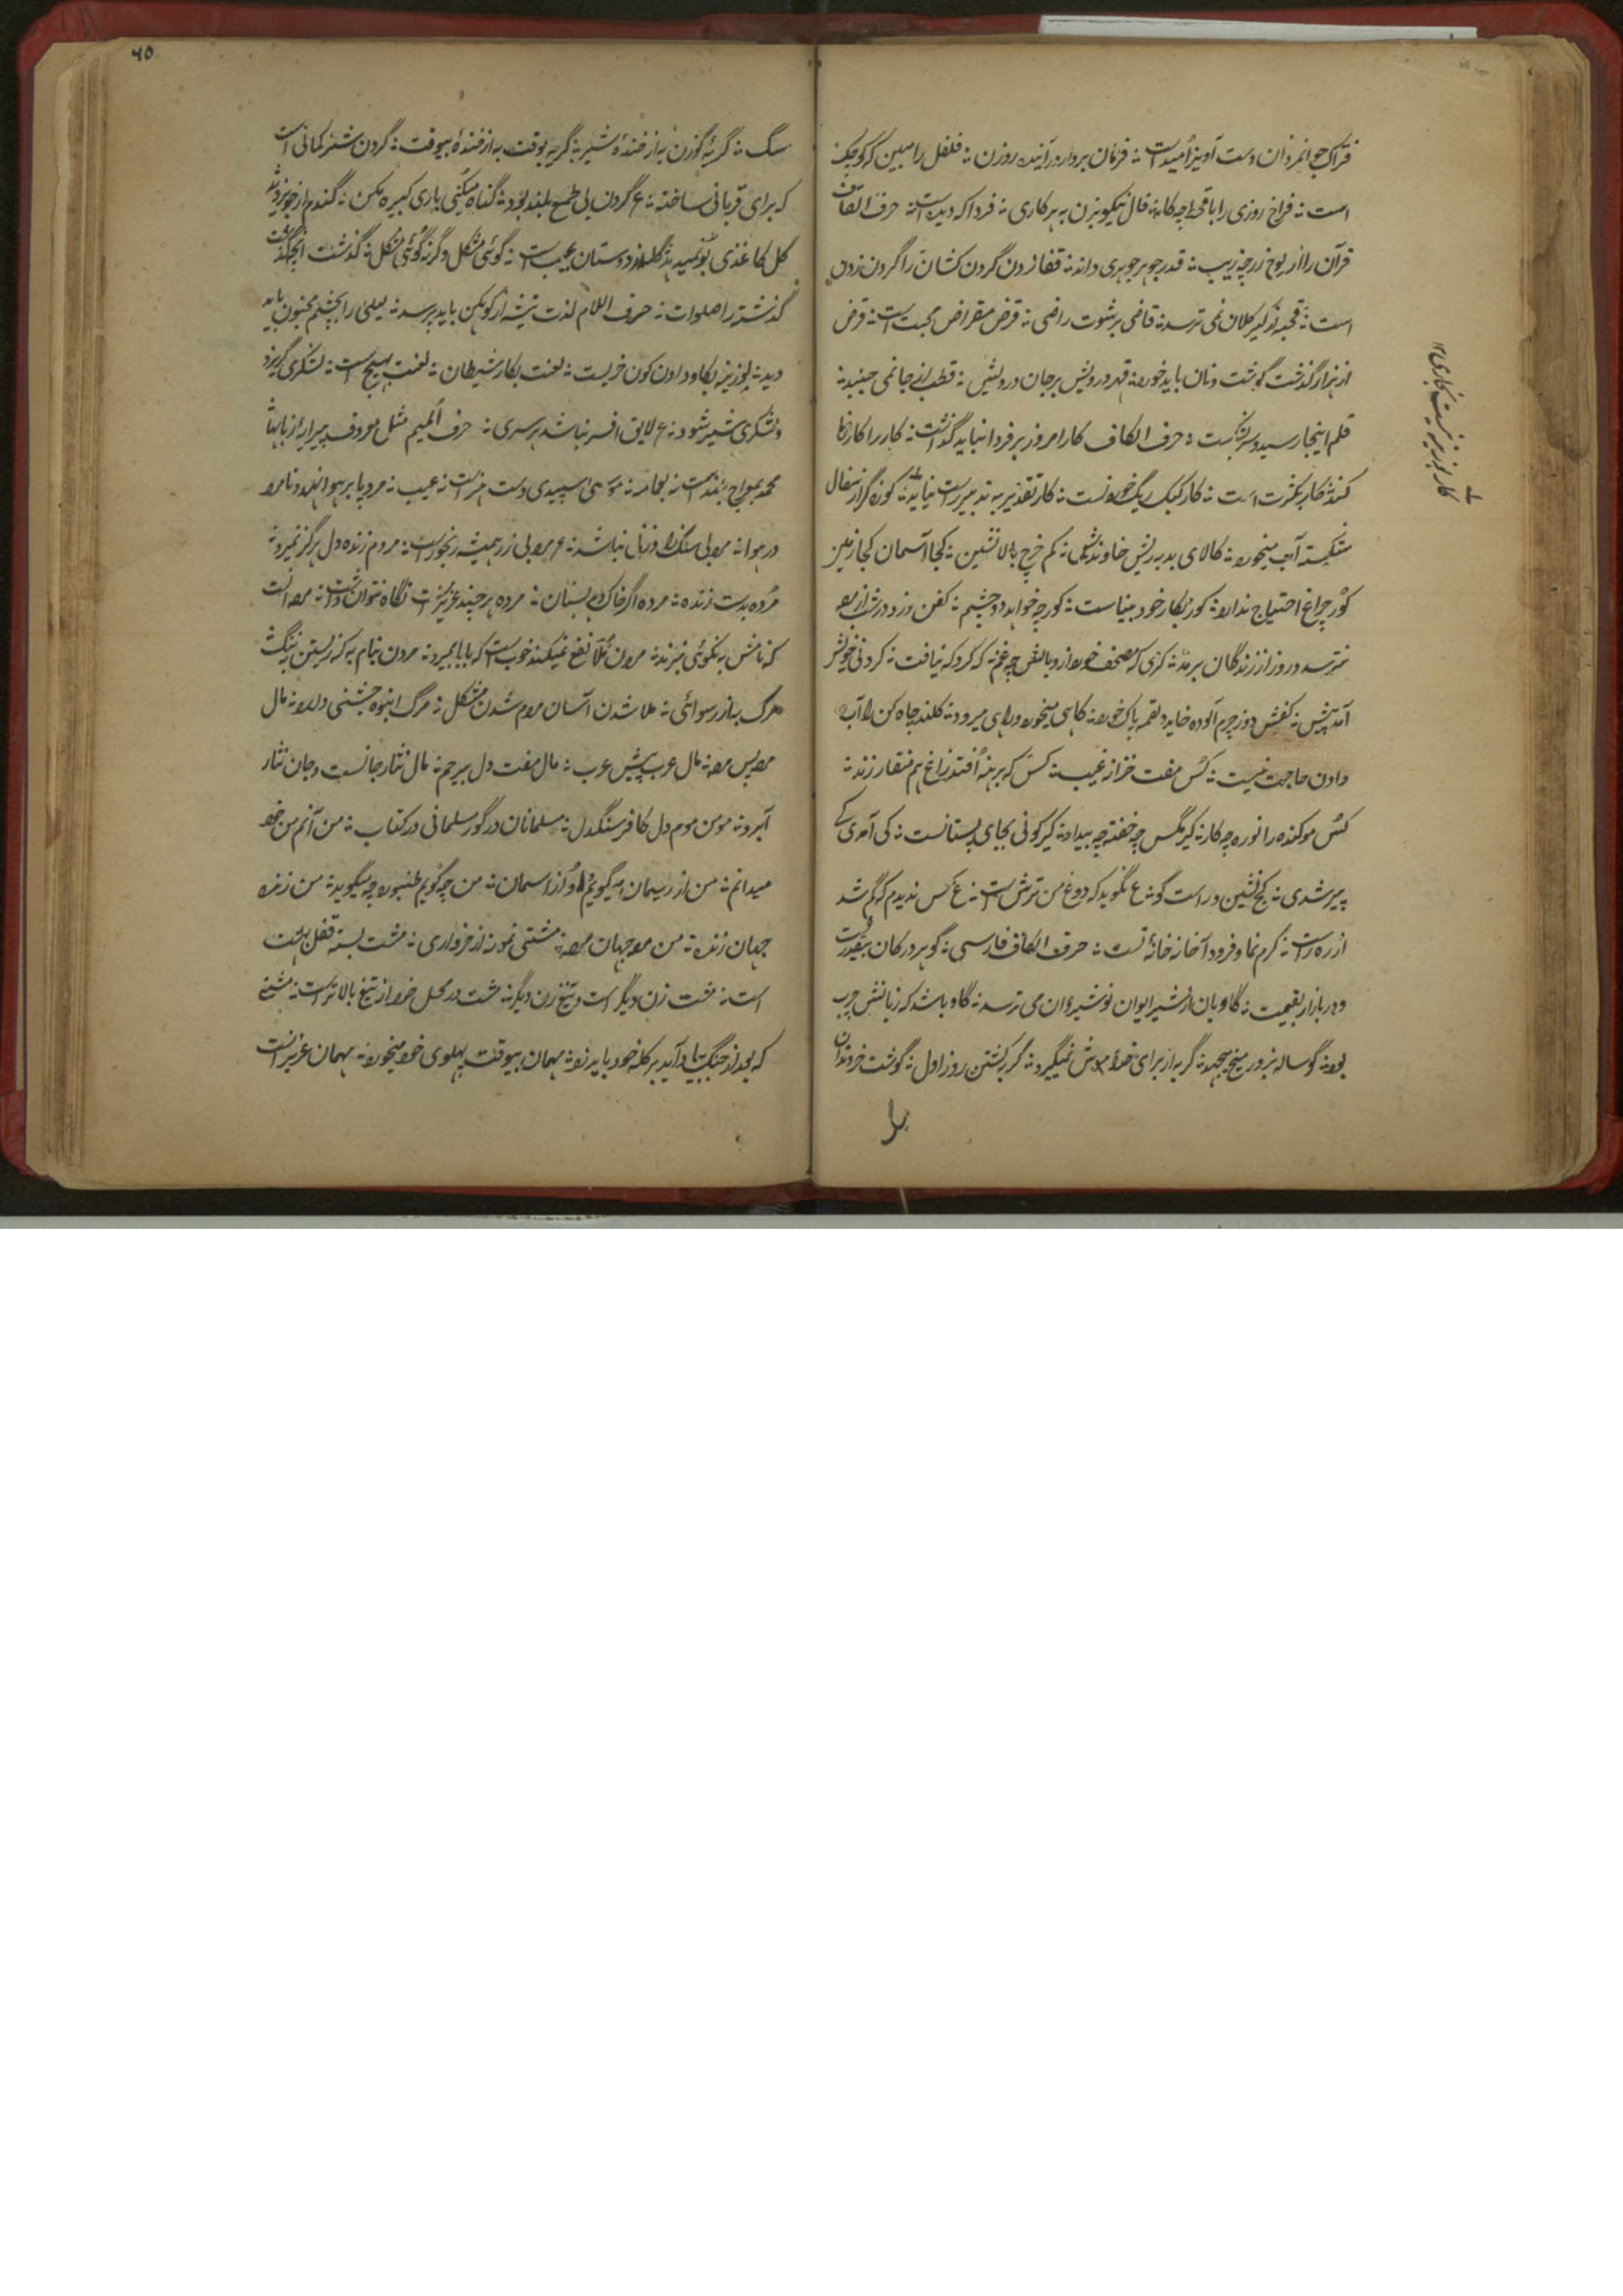 فتراک جوانمردان دست آویز امیدست ؞ فرمان بردار در آینده روزن ؞ فلفل را مبین که کوچک
است ؞ فراخ روزی را با قحط چه کار ؞ فال نیکو بزن به هر کاری ؞ فردا که دیده است ؞ حرف القاف
قرآن را از لوح زر چه زیب ؞ قدر جوهر جوهری داند ؞ قفا زدن گردن کشان را گردن زدن
است ؞ قحبه از کیر کلان نمی ترسد ؞ قاضی برشوت راضی ؞ قرض مقراض محبت است ؞ قرض
از هزار گذشت گوشت و نان باید خورد ؞ قهر درویش بر جان درویش ؞ قطب از جا نمی جنبد ؞
قلم اینجا رسید و سر بشکست ؞ حرف الکاف کار امروز بر فردا نباید گذاشت ؞ کار را کارفرما
کند ؞ کار بکثرت است ؞ کار کبک ریگ خوردنست ؞ کار تقدیر به تدبیر راست نیاید ؞ کوزه گر از سفال
شکسته آب میخورد ؞ کالای بد بریش خاوندش ؞ کم خرچ بالا نشین ؞ کجا آسمان کجا زمین
کور چراغ احتیاج ندارد ؞ کور بکار خود بیناست ؞ کور چه خواهد دو چشم ؞ کفن دزد در شب از مرده
نترسد و روز از زندگان بر مد ؞ کرمی که مصحف خورد از وبالش چه غم ؞ که کرد که نیافت ؞ کردنی خویش
آمد پیش ؞ کفش دوز چرم آلوده خاید و لقمه پاک خورد ؞ کاسی میخورد و راهی میرود ؞ کلند چاه کن را آب
دادن حاجت نیست ؞ کس مفت خر از غیب ؞ کس که برهنه افتد زاغ هم منقار زند ؞
کس موکنده را نوره چه کار ؞ کیر مگس چه خفته چه بیدار ؞ کیر کونی بجای پستانست ؞ کی آمدی کی
پیر شدی ؞ کج نشین و راست گو ؞ ع نگوید که دوغ من ترش است ؞ ع کس ندیدم که گم شد
از ره راست ؞ کرم نما و فرود آ خانه خانهٔ تست ؞ حرف الکاف فارسی ؞ گوهر در کان بیقدرست
و در بازار بقیمت ؞ گاوبان از شیر ایوان نوشیروان می ترسد ؞ گاو باشد که زبانش چرب
بود ؞ گوساله بزور میخ میجهد ؞ گربه از برای خدا موش نمیگیرد ؞ گربه کشتن روز اول ؞ گوشت خر دندان
کار بوزینه نیست نجاری ۱۲
۴۵
سگ ؞ گریهٔ گوزن به از خندهٔ شیر ؞ گریه بوقت به از خندهٔ بیوقت ؞ گردن شتر کمانی است
که برای قربانی ساخته ؞ ع گردن بی طمع بلند بود ؞ گناه میکنی باری کبیره مکن ؞ گندم از جو بروید
گل کاغذی بو نمیدهد ؞ گله از دوستان عجیب است ؞ گوئی مشکل و گر نگوئی مشکل ؞ گذشت آنچه گذشت
گذشته را صلوات ؞ حرف اللام لذت تیشه از کوهکن باید پرسید ؞ لیلی را بچشم مجنون باید
دید ؞ لوزینه بگاو دادن کون خریست ؞ لعنت بکار شیطان ؞ لعنت به هیچ است ؞ لشکری گریزد
و لشکری شیر شود ؞ ع لایق افسر نباشد هر سری ؞ حرف المیم مثل معروف پیرایهٔ زبانها
محمد بمعراج بلند است نه بعمامه ؞ موسی سپیدی دست هنر است نه عیب ؞ مرد پا بر هوا نهد و نامرد
در هوا ؞ مرد بی سنگ را وزن نباشد ؞ ع مرد بی زر همیشه رنجورست ؞ مردم زنده دل هرگز نمیرد ؞
مرده بدست زنده ؞ مرده اگر خاک دهد بستان ؞ مرده هر چند عزیزست نگاه نتوان داشت ؞ مرد آنست
که نامش به نکوئی نبرند ؞ مردن ملا نفع نمیکند خوب است که بابا بمیرد ؞ مردن بنام به که زیستن به ننگ
مرگ به از رسوائی ؞ ملا شدن آسان مردم شدن مشکل ؞ مرگ انبوه جشنی دارد ؞ مال
مرد پس مرد ؞ مال عرب پیش عرب ؞ مال مفت دل بیرحم ؞ مال نثار جانست و جان نثار
آبرو ؞ مومن موم دل کافر سنگدل ؞ مسلمانان در گور مسلمانی در کتاب ؞ من آنم من خود
میدانم ؞ من از ریسمان میگویم او از آسمان ؞ من چه گویم طنبوره چه میگوید ؞ من زنده
جهان زنده ؞ من مرده جهان مرده ؞ مشتی نمونه از خرواری ؞ مشت بسته قفل بهشت
است ؞ مشت زن دیگر است و تیغ زن دیگر ؞ مشت در محل خود از تیغ بالاتر است ؞ مشتی
که بعد از جنگ بیاد آید بر کله خود باید زد ؞ مهمان بیوقت پهلوی خود میخورد ؞ مهمان عزیز است